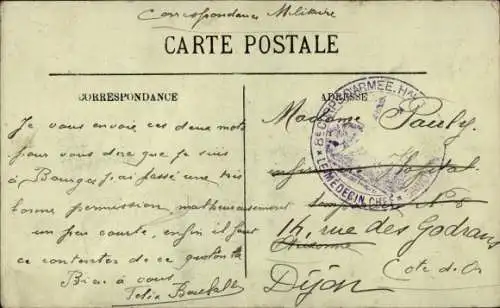 Correspondance Militaire
CARTE POSTALE
CORRESPONDANCE
ADRESSE
Je vous envoie ces deux mots
pour vous dire que je suis
à Bourges j'ai passé une très
bonne permission, malheureusement
un peu courte, enfin il faut
se contenter de ce qu'on
Bien à vous
Félix
Madame Pauly
Hopital
14, rue des Godrans
Dijon
Cote d'Or
8e CORPS D'ARMEE
LE MEDECIN CHEF